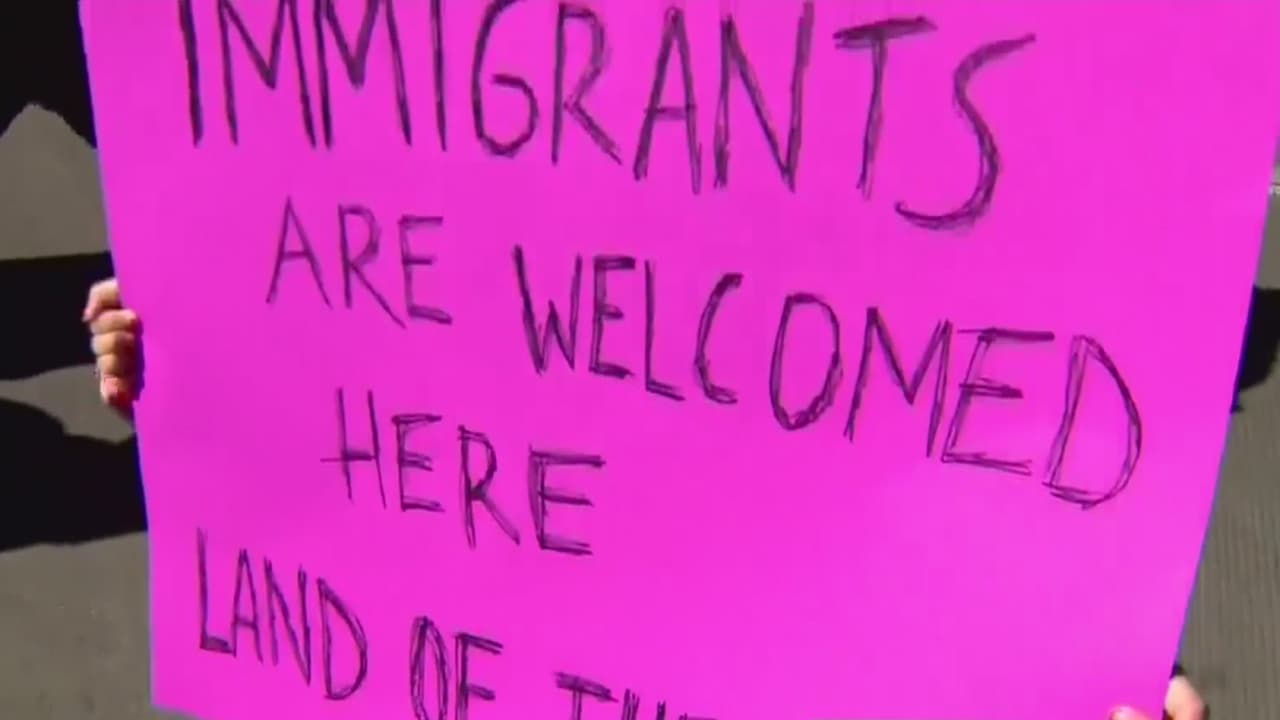 IMMIGRANTS
ARE WELCOMED
HERE
LAND OF THE